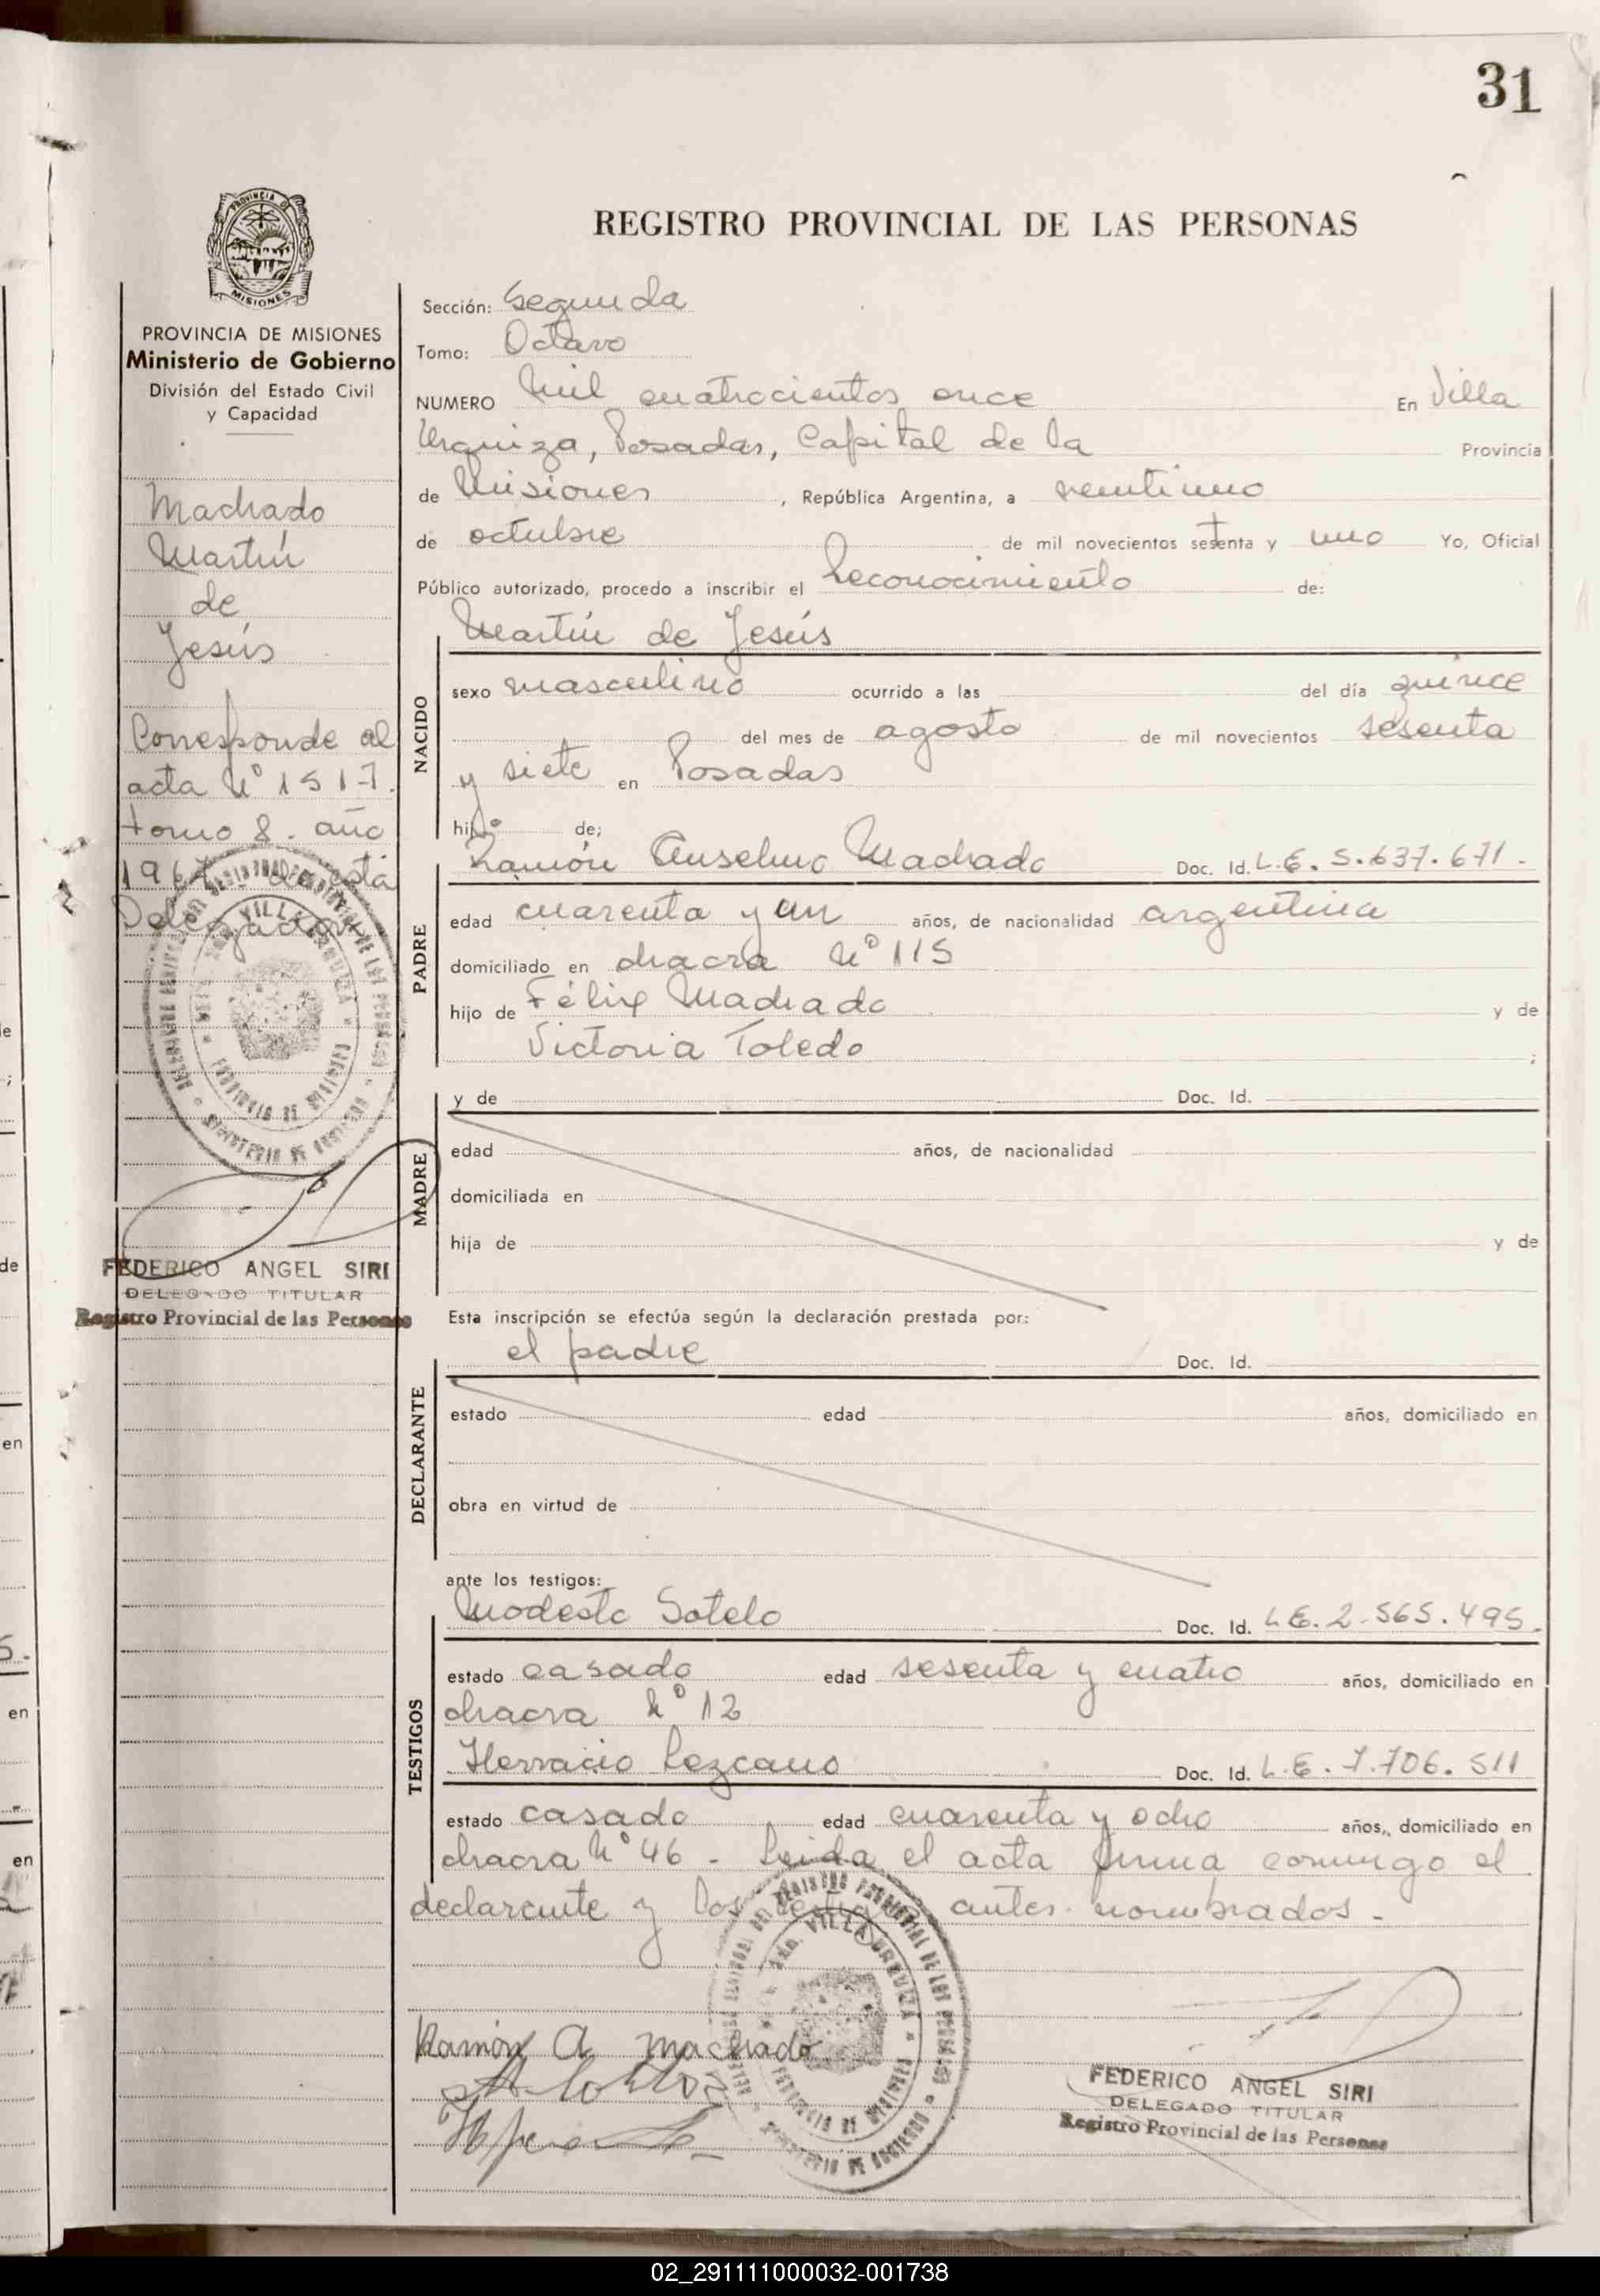 31
REGISTRO PROVINCIAL DE LAS PERSONAS
PROVINCIA DE MISIONES
PROVINCIA DE MISIONES
Ministerio de Gobierno
División del Estado Civil
y Capacidad
Machado
Martín
de
Jesús
Corresponde al
acta Nº 1517.
tomo 8. año
1967 de esta
Delegación
FEDERICO ANGEL SIRI
DELEGADO TITULAR
Registro Provincial de las Personas
Sección: Segunda
Tomo: Octavo
NUMERO Mil cuatrocientos once En Villa
Urquiza, Posadas, Capital de la Provincia
de Misiones, República Argentina, a veintiuno
de octubre de mil novecientos setenta y uno Yo, Oficial
Público autorizado, procedo a inscribir el Reconocimiento de:
Martín de Jesús
NACIDO
sexo masculino ocurrido a las del día quince
del mes de agosto de mil novecientos sesenta
y siete en Posadas
hijo de;
PADRE
Ramón Anselmo Machado Doc. Id. L.E. 5.637.671.-
edad cuarenta y un años, de nacionalidad argentina
domiciliado en chacra Nº 115
hijo de Félix Machado y de
Victoria Toledo ;
MADRE
y de Doc. Id.
edad años, de nacionalidad
domiciliada en
hija de y de
Esta inscripción se efectúa según la declaración prestada por:
DECLARANTE
el padre Doc. Id.
estado edad años, domiciliado en
obra en virtud de
ante los testigos:
TESTIGOS
Modesto Sotelo Doc. Id. L.E. 2.565.495.
estado casado edad sesenta y cuatro años, domiciliado en
chacra Nº 12
Horracio Lezcano Doc. Id. L.E. 7.706.511
estado casado edad cuarenta y ocho años, domiciliado en
chacra Nº 46 - Leida el acta firma conmigo el
declarante y los testigos antes nombrados.-
Ramón A machado
FEDERICO ANGEL SIRI
DELEGADO TITULAR
Registro Provincial de las Personas
02_291111000032-001738